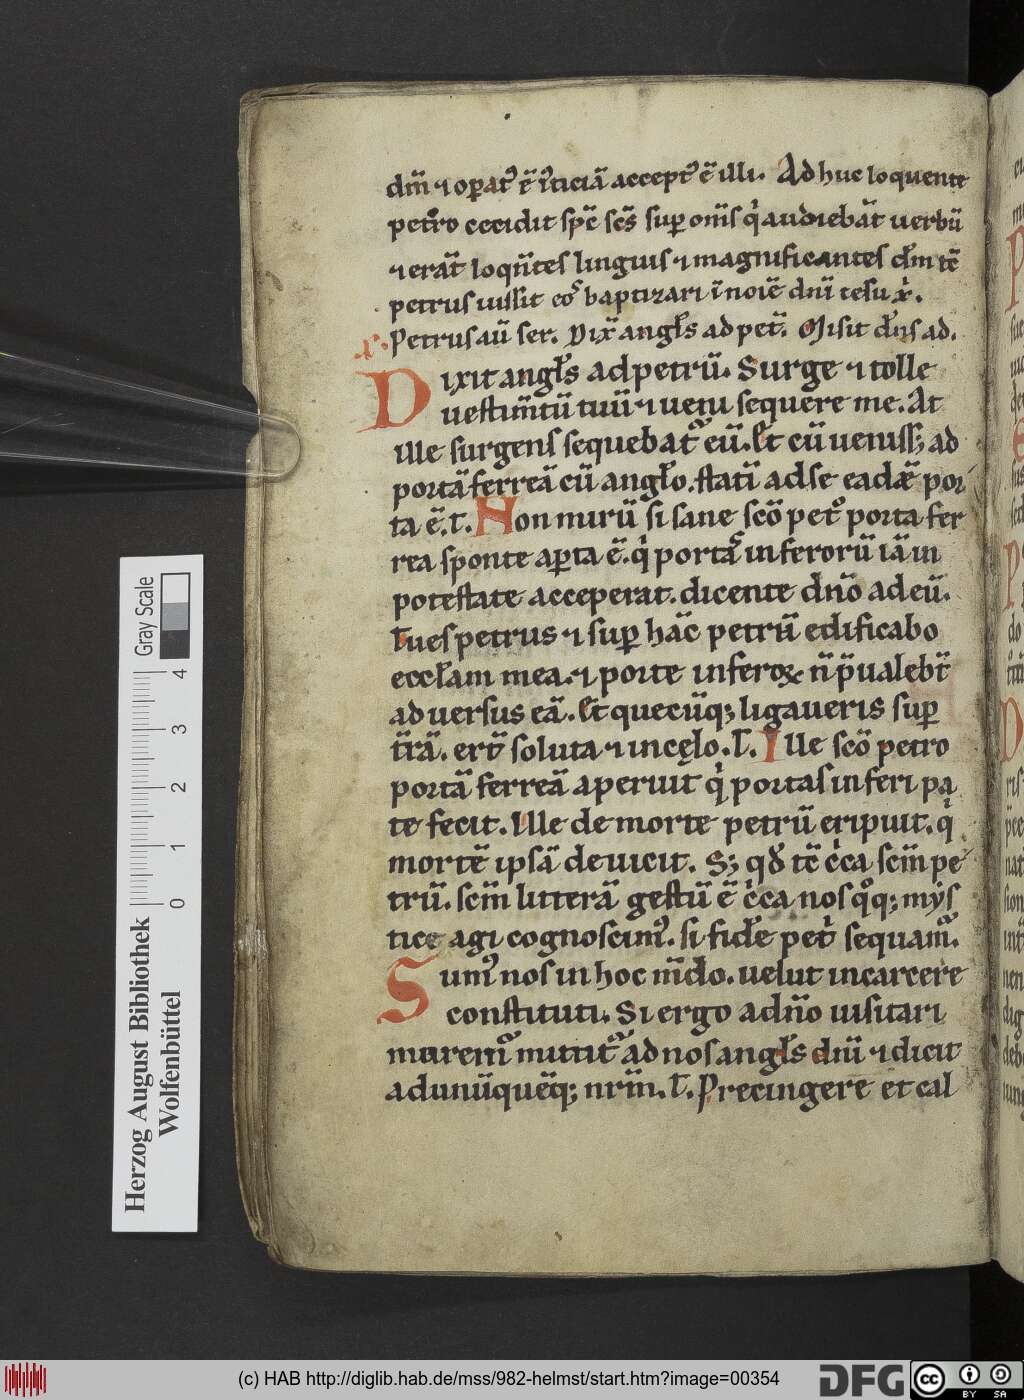 dm̄ ⁊ op̄atꝰ ē iᷤticiā acceptꝰ ē illi. Ad huc loquente
petro cecidit sp̄c sc̄s sup om̄s qi audiebāt uerbū
⁊ erāt loqn̄tes linguis ⁊ magnificantes dm̄ tē
petrus iussit eoˢ baptizari ī noīe dnī iesu x̄.
Petrus aū ser. Dix̄ angls̄ ad pet̄. Misit dn̄s ad.
Dixit angls̄ ad petrū. Surge ⁊ tolle
uestim̄tū tuū ⁊ ueni sequere me. At
ille surgens sequebat᷑ eū. Et cū uenissꝫ ad
portā ferreā cū anglo. statī ad se eadē por
ta ē. ł. Non mirū si sane scō petº porta fer
rea sponte apta ē. qi portaꝝ inferorū iā in
potestate acceperat. dicente dnō ad eū.
Tu es petrus ⁊ sup hāc petrū edificabo
eccl̄am mea. ⁊ porte inferoꝝ n̄ p̄ualebt̄
aduersus eā. Et quecūqꝫ ligaueris sup
t̄rā. ert̄ soluta ⁊ in cęlo. ł. Ille scō petro
portā ferreā aperuit qi portas inferi pa
tefecit. Ille de morte petrū eripuit. qi
mortē ipsā deuicit. Sꝫ qđ tē cᷤca scm̄ pe
trū. scm̄ litterā gestū ē cᷤca nos qºqꝫ mys
tice agi cognoscimꝰ. si fidē petᷤ sequam᷑.
Sumꝰ nos in hoc mdo. uelut in carcere
constituti. Si ergo adnō uisitari
mitrem᷑ mittit᷑ ad nos angls̄ diu ⁊ dicit
ad unūquēqꝫ nrm̄. ł. Precingere et cal
Gray Scale
4
3
2
1
0
Herzog August Bibliothek
Wolfenbüttel
(c) HAB http://diglib.hab.de/mss/982-helmst/start.htm?image=00354
DFG
cc
BY SA